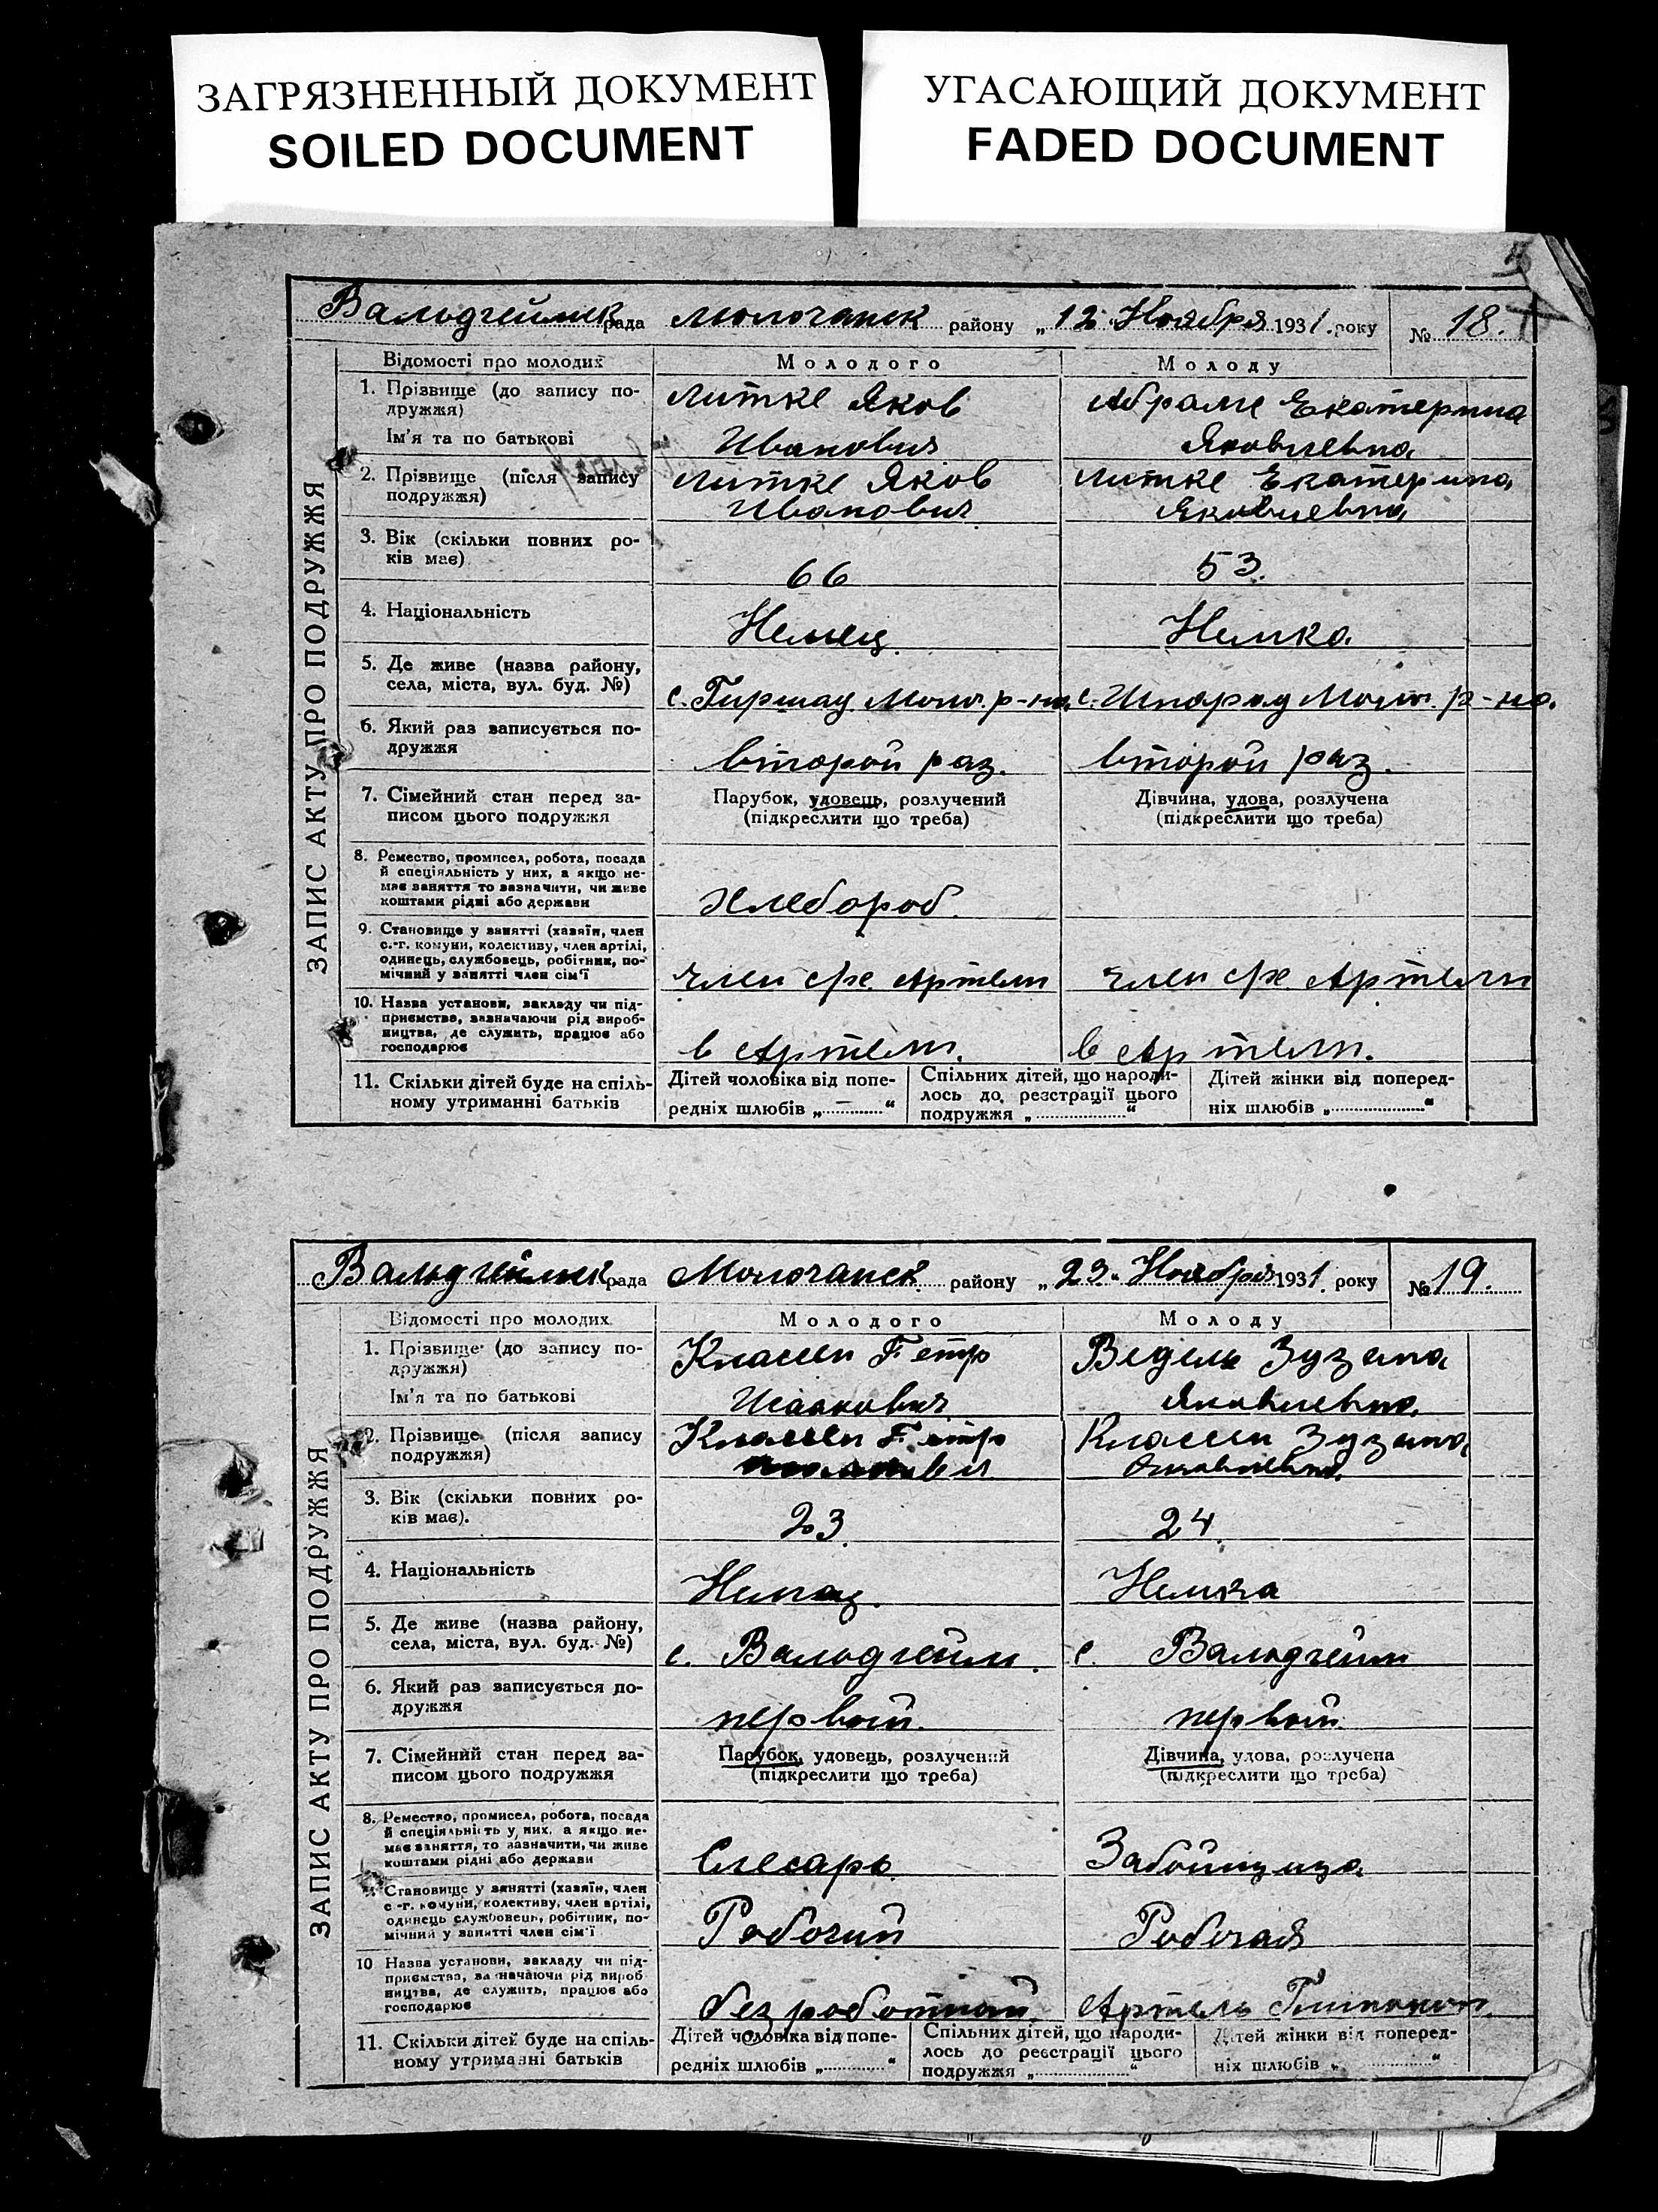 ЗАГРЯЗНЕННЫЙ ДОКУМЕНТ
SOILED DOCUMENT
УГАСАЮЩИЙ ДОКУМЕНТ
FADED DOCUMENT
ЗАПИС АКТУ ПРО ПОДРУЖЖЯ
Вальдгеймск рада Молочанск району „12" Ноября 1931. року № 18.
Відомості про молодих Молодого Молоду
1. Прізвище (до запису по- Литке Яков Абрамс Екатерина
дружжя)
Ім'я та по батькові Иванович Яковлевна
2. Прізвище (після запису Литке Яков Литке Екатерина
подружжя) Иванович Яковлевна
3. Вік (скільки повних ро-
ків має) 66 53.
4. Національність Немец Немка
5. Де живе (назва району,
села, міста, вул. буд. №) с. Гиршау Молоч. р-на с. Шпарау Молоч. р-на.
6. Який раз записується по-
дружжя второй раз. второй раз.
7. Сімейний стан перед за- Парубок, удовець, розлучений Дівчина, удова, розлучена
писом цього подружжя (підкреслити що треба) (підкреслити що треба)
8. Ремество, промисел, робота, посада
й спеціяльність у них, а якщо не-
має заняття то зазначити, чи живе
коштами рідні або держави хлебороб.
9. Становище у занятті (хазяїн, член
с.-г. комуни, колективу, член артілі,
одинець, службовець, робітник, по-
мічний у занятті член сім'ї член с/х. Артели член с/х Артели
10. Назва установи, закладу чи під-
приємства, зазначаючи рід вироб-
ництва, де служить, працює або
господарює в Артели. в Артели.
11. Скільки дітей буде на спіль- Дітей чоловіка від попе- Спільних дітей, що народи- Дітей жінки від поперед-
ному утриманні батьків редніх шлюбів „............“ лось до реєстрації цього ніх шлюбів „............“
подружжя „............“
ЗАПИС АКТУ ПРО ПОДРУЖЖЯ
Вальдгеймск рада Молочанск району „23" Ноября 1931. року № 19.
Відомості про молодих Молодого Молоду
1. Прізвище (до запису по- Классен Петр Ведель Зузана
дружжя)
Ім'я та по батькові Исаакович Яковлевна
2. Прізвище (після запису Классен Петр Классен Зузана
подружжя) Яковлевна
3. Вік (скільки повних ро-
ків має). 23. 24.
4. Національність Немец. Немка
5. Де живе (назва району,
села, міста, вул. буд. №) с. Вальдгейм. с. Вальдгейм
6. Який раз записується по-
дружжя первый. первый.
7. Сімейний стан перед за- Парубок, удовець, розлучений Дівчина, удова, розлучена
писом цього подружжя (підкреслити що треба) (підкреслити що треба)
8. Ремество, промисел, робота, посада
й спеціяльність у них, а якщо не-
має заняття, то зазначити, чи живе
коштами рідні або держави Слесарь
Становище у занятті (хазяїн, член
с-г. комуни, колективу, член артілі,
одинець службовець, робітник, по-
мічний у занятті член сім'ї Рабочий Рабочая
10 Назва установи, закладу чи під-
приємства, зазначаючи рід вироб
ництва, де служить, працює або
господарює безработный. Артель
11. Скільки дітей буде на спіль- Дітей чоловіка від попе- Спільних дітей, що народи- Дітей жінки від поперед-
ному утриманні батьків редніх шлюбів „............“ лось до реєстрації цього ніх шлюбів „............“
подружжя „............“